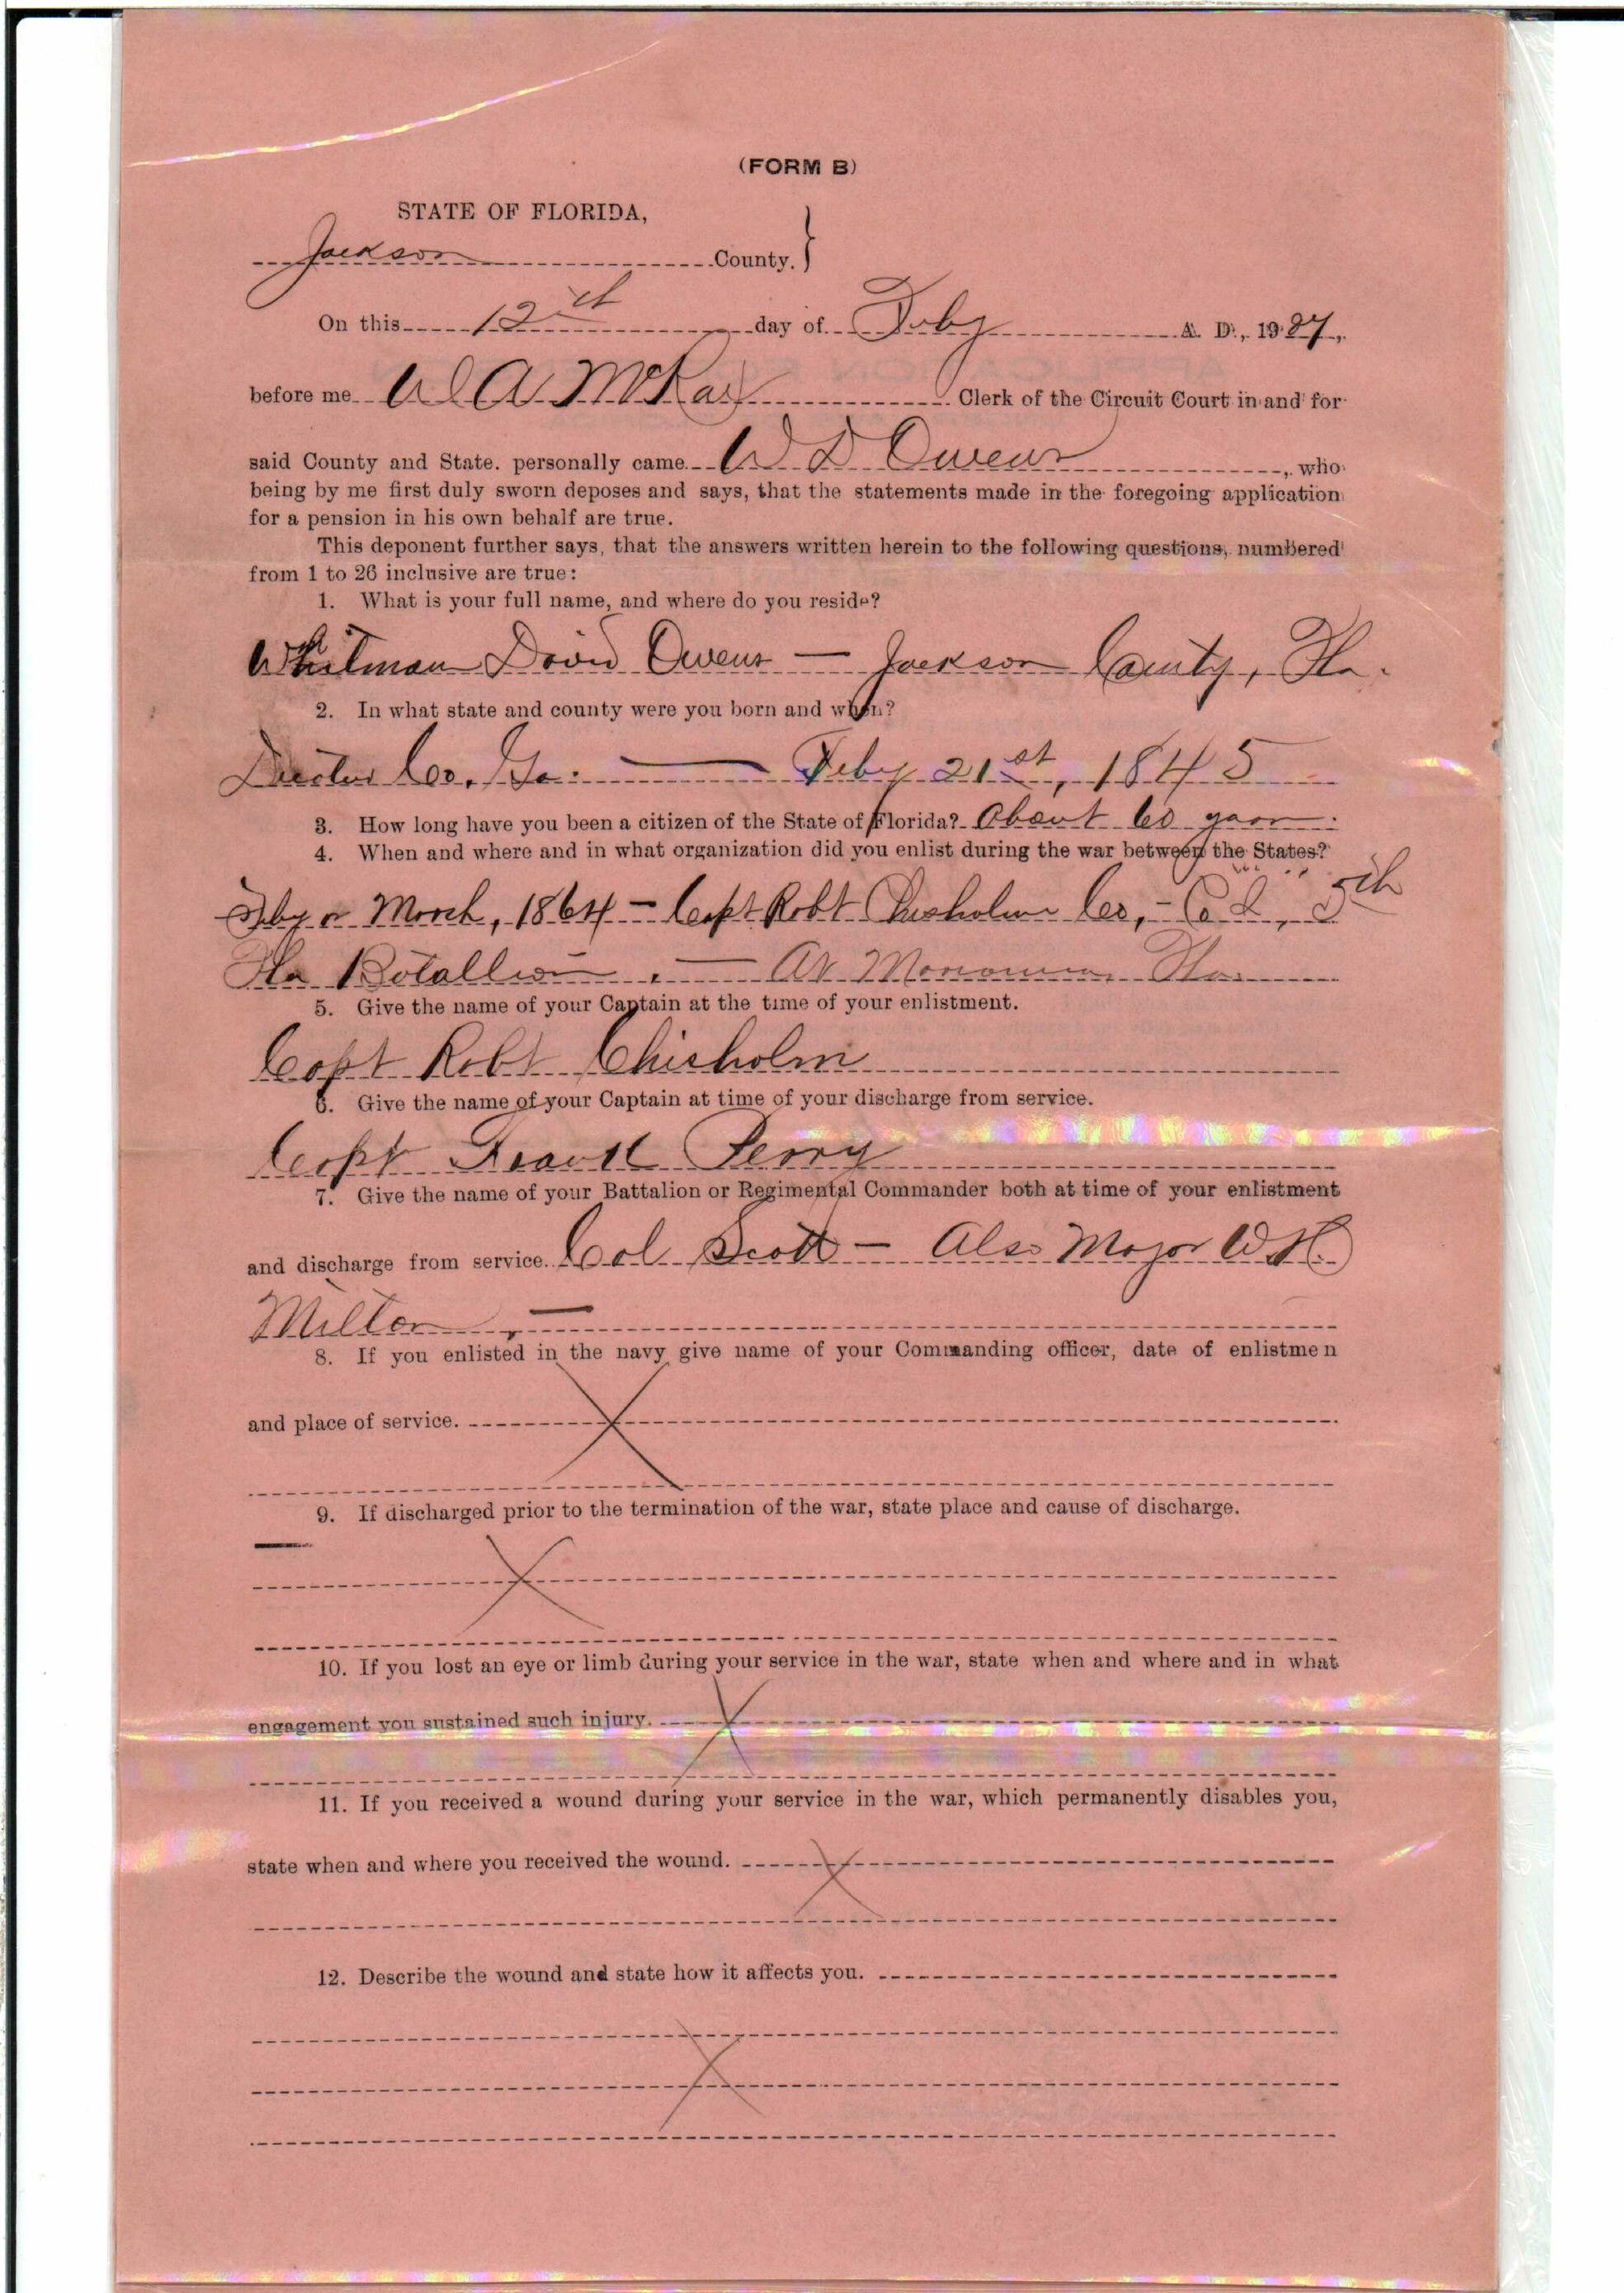 (FORM B)
STATE OF FLORIDA,
Jackson County. }
On this 12th day of Feby A. D., 1907,
before me W A McRae Clerk of the Circuit Court in and for
said County and State. personally came W D Owens, who
being by me first duly sworn deposes and says, that the statements made in the foregoing application
for a pension in his own behalf are true.
This deponent further says, that the answers written herein to the following questions, numbered
from 1 to 26 inclusive are true:
1. What is your full name, and where do you reside?
Whitman David Owens — Jackson County, Fla.
2. In what state and county were you born and when?
Co. Ga. — Feby 21st, 1845
3. How long have you been a citizen of the State of Florida? About 60 years.
4. When and where and in what organization did you enlist during the war between the States?
Feby or March, 1864 – Capt Robt Chisholm Co, – Co I, 5th
Fla Batallion, — At Marianna, Fla.
5. Give the name of your Captain at the time of your enlistment.
Capt Robt Chisholm
6. Give the name of your Captain at time of your discharge from service.
Capt Frank Perry
7. Give the name of your Battalion or Regimental Commander both at time of your enlistment
and discharge from service. Col Scott – Also Major W.H.
Milton, —
8. If you enlisted in the navy give name of your Commanding officer, date of enlistmen
and place of service.
9. If discharged prior to the termination of the war, state place and cause of discharge.
10. If you lost an eye or limb during your service in the war, state when and where and in what
engagement you sustained such injury.
11. If you received a wound during your service in the war, which permanently disables you,
state when and where you received the wound.
12. Describe the wound and state how it affects you.